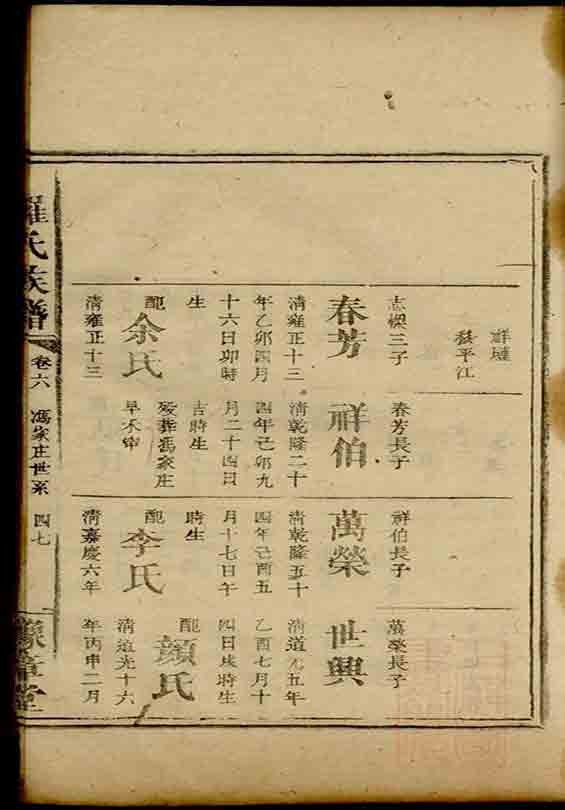 移平江
志樑三子
春芳
清雍正十三
年乙卯四月
十六日卯時
生
配余氏
清雍正十三
春芳長子
祥伯
清乾隆二十
四年己卯九
月二十四日
吉時生
歿葬馮家庄
早禾
祥伯長子
萬榮
清乾隆五十
四年己酉五
月十七日午
時生
配李氏
清嘉慶六年
萬榮長子
世興
清道光五年
乙酉七月十
四日戌時生
配顏氏
清道光十六
年丙申二月
羅氏族譜 卷六 馮家庄世系 四七 豫章堂